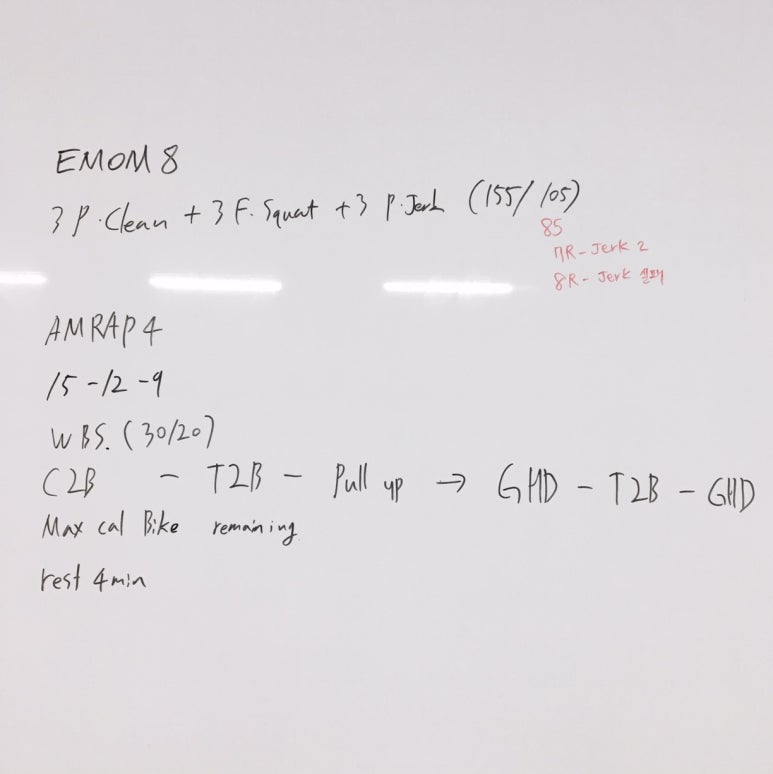 EMOM 8
3 P.Clean + 3 F.Squat + 3 P.Jerk (155/105)
85
7R - Jerk 2
8R - Jerk 실패
AMRAP 4
15 - 12 - 9
WBS. (30/20)
C2B - T2B - Pull up → GHD - T2B - GHD
Max cal Bike remaining
rest 4min